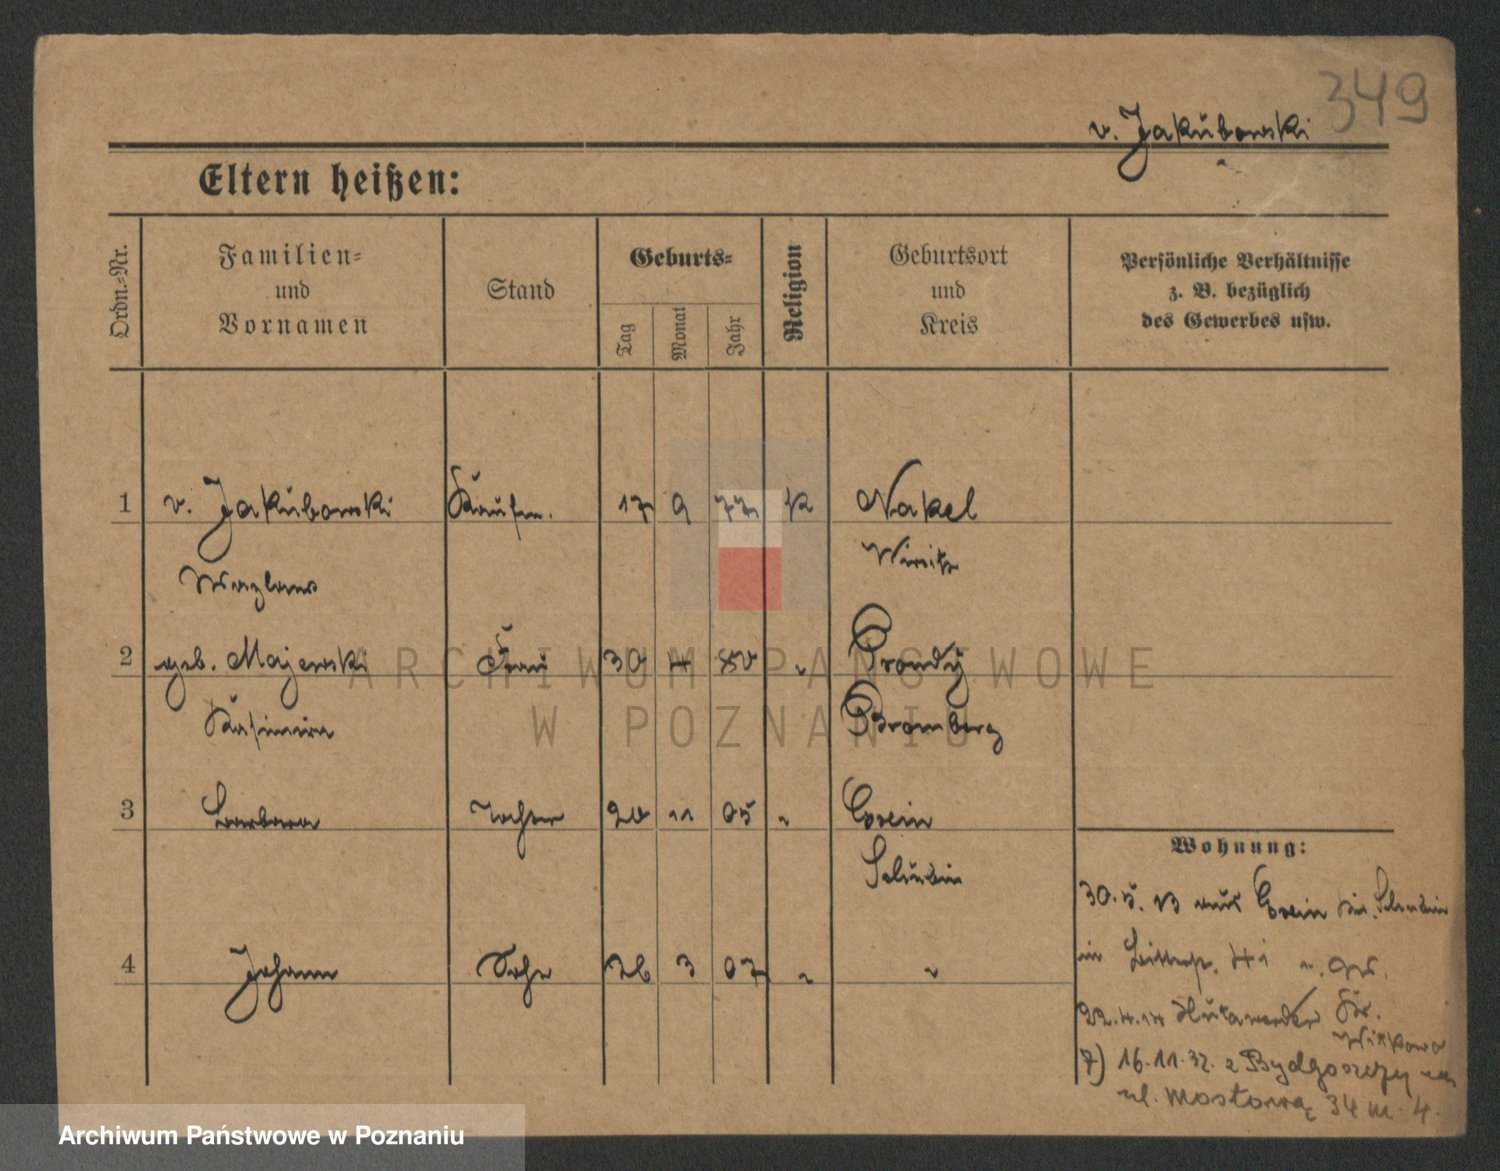 349
v. Jakubowski
Eltern heißen:
Ordn.-Nr.
Familien-
und
Vornamen
Stand
Geburts-
Tag
Monat
Jahr
Religion
Geburtsort
und
Kreis
Persönliche Verhältnisse
z. B. bezüglich
des Gewerbes usw.
1 v. Jakubowski Kaufm. 17 9 77 k Nakel
Wazlaw Wirsitz
2 geb. Majewski Frau 30 4 80 " Prondy
Kasimira Bromberg
3 Barbara Tochter 20 11 05 " Exin
Schubin
4 Johann Sohn 26 3 07 " "
Wohnung:
30.5.13 aus Exin Kr. Schubin
in
22.4.14 Kr.
Witkowo
7) 16.11.32. z Bydgoszczy
ul. Mostowa 34 m. 4.
ARCHIWUM PAŃSTWOWE
W POZNANIU
Archiwum Państwowe w Poznaniu